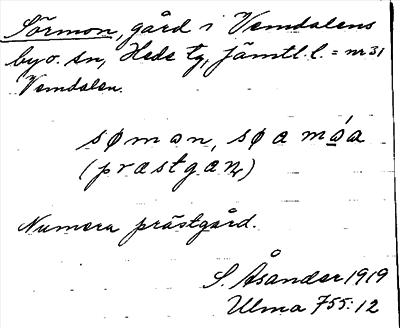 Sörmon, gård i Vemdalens
by o. sn, Hede tg, Jämtl. l. = nr 31
Vemdalen.
sømon, søa móa
(præstgaɳ)
Numera prästgård.
S. Åsander 1919
Ulma 755:12